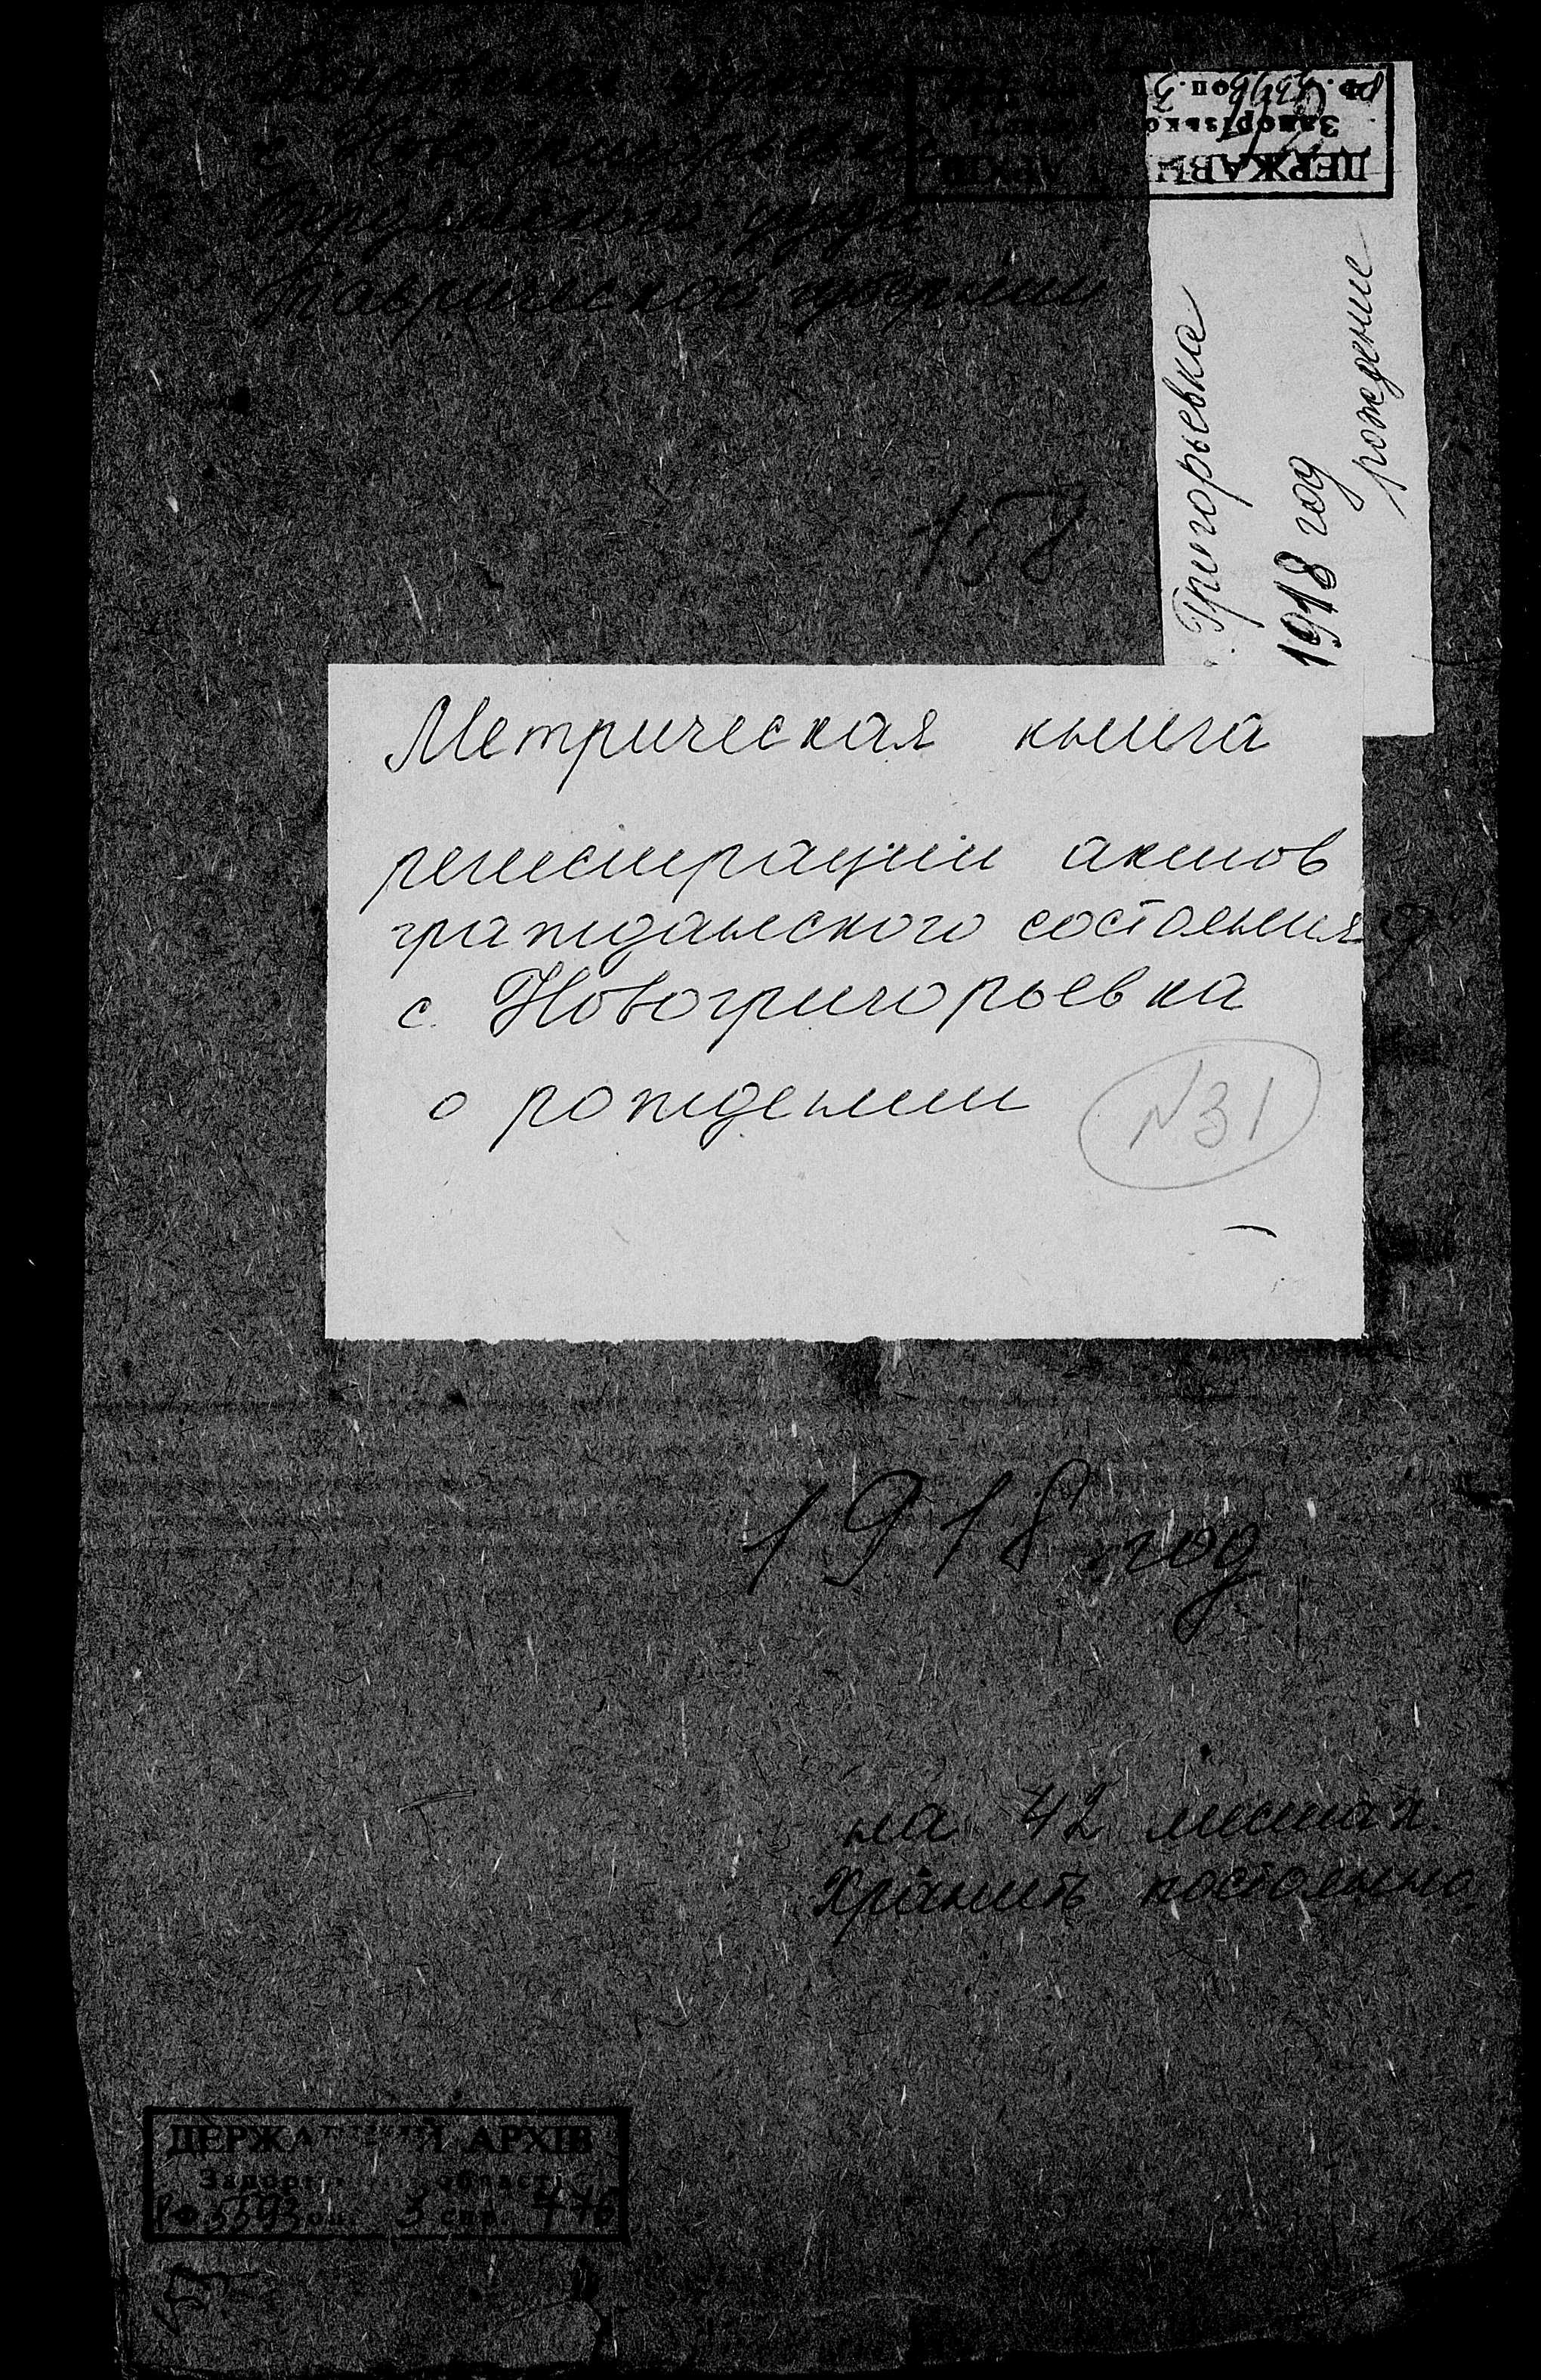 Покровская церковь
с. Новогригорьевка
Бердянского уезда
Таврической губернии
ДЕРЖАВНИЙ АРХІВ
Запорізької області
158
Григорьевка
1918 год
рождение
Метрическая книга
регистрации актов
гражданского состояния
с. Новогригорьевка
о рождении
N31
1918 год
на 42 листах.
Хранить постоянно
ДЕРЖАВНИЙ АРХІВ
Запорізької області
РФ 5593 оп. 3 спр. 776